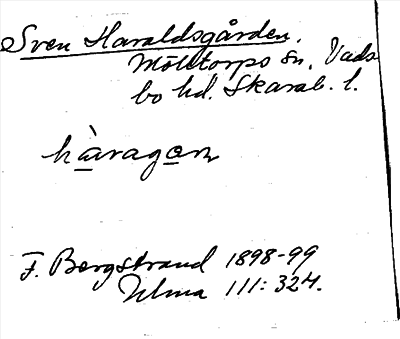 Sven Haraldsgården.
Mölltorps sn. Vads
bo hd. Skarab. l.
hàragon
F. Bergstrand 1898-99
Ulma 111: 324.